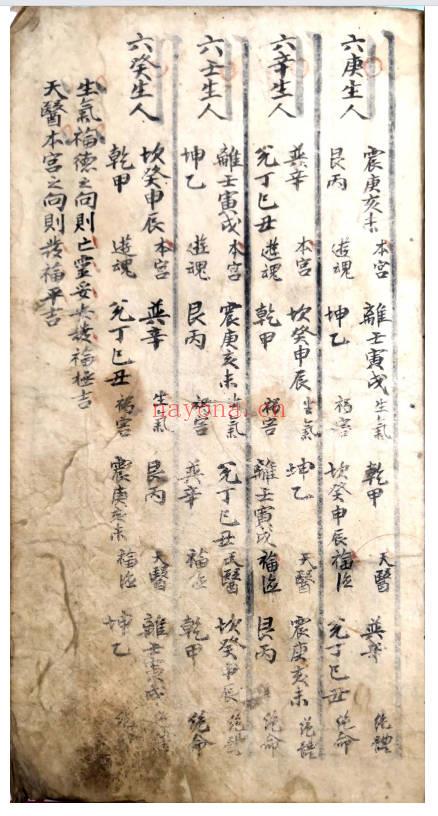 六庚生人
震庚亥未 本宮 離壬寅戌 生氣 乾甲 天醫 巽辛 絶體
艮丙 遊魂 坤乙 禍害 坎癸申辰 福德 兌丁巳丑 絶命
六辛生人
巽辛 本宮 坎癸申辰 生氣 坤乙 天醫 震庚亥未 絶體
兌丁巳丑 遊魂 乾甲 禍害 離壬寅戌 福德 艮丙 絶命
六壬生人
離壬寅戌 本宮 震庚亥未 生氣 兌丁巳丑 天醫 坎癸申辰 絶體
坤乙 遊魂 艮丙 禍害 巽辛 福德 乾甲 絶命
六癸生人
坎癸申辰 本宮 巽辛 生氣 艮丙 天醫 離壬寅戌
乾甲 遊魂 兌丁巳丑 禍害 震庚亥未 福德 坤乙 絶命
生氣福德之向則亡靈妥大發福極吉
天醫本宮之向則發福平吉
nayona.cn